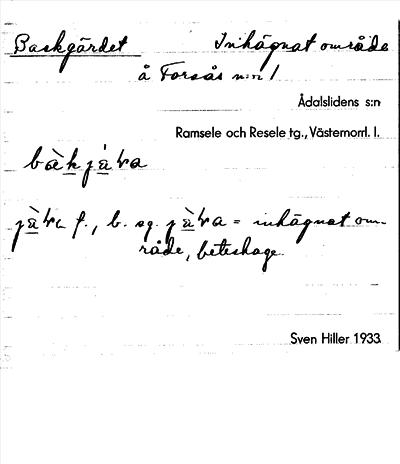 Baskgärdet Inhägnat område
å Forsås n:n 1
Ådalslidens s:n
Ramsele och Resele tg., Västernorrl. l.
f., b. sg. = inhägnat om-
råde, beteshage.
Sven Hiller 1933